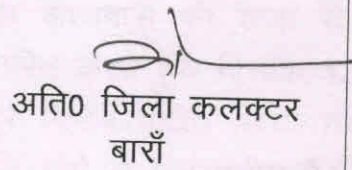 अति0 जिला कलक्टर
बाराँ